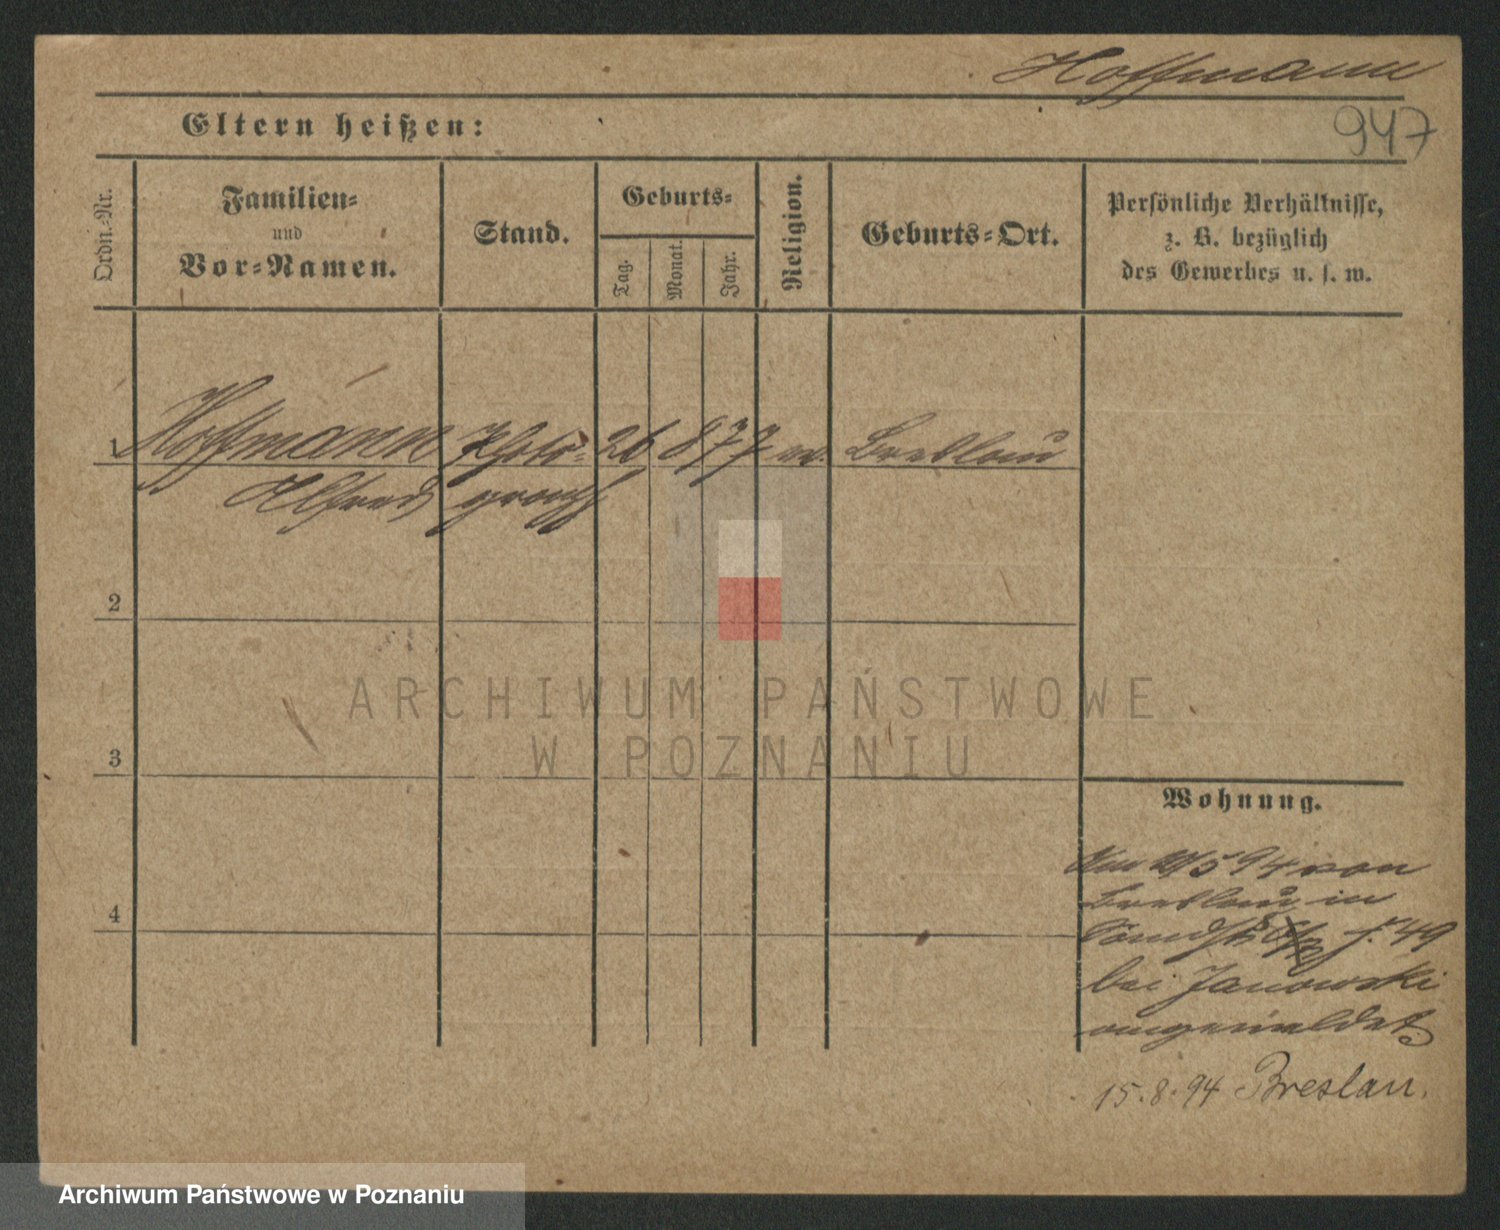 Hoffmann
947
Eltern heißen:
Ordn.-Nr.
Familien-
und
Vor-Namen.
Stand.
Geburts-
Tag.
Monat.
Jahr.
Religion.
Geburts-Ort.
Persönliche Verhältnisse,
z. B. bezüglich
des Gewerbes u. s. w.
1 Hoffmann Photo- 26 8 77 Breslau
Alfred graph
2
ARCHIWUM PAŃSTWOWE
W POZNANIU
3
Wohnung.
5 94 von
Breslau in
49
4
bei Janowski
angemeldet
15.8.94 Breslau.
Archiwum Państwowe w Poznaniu